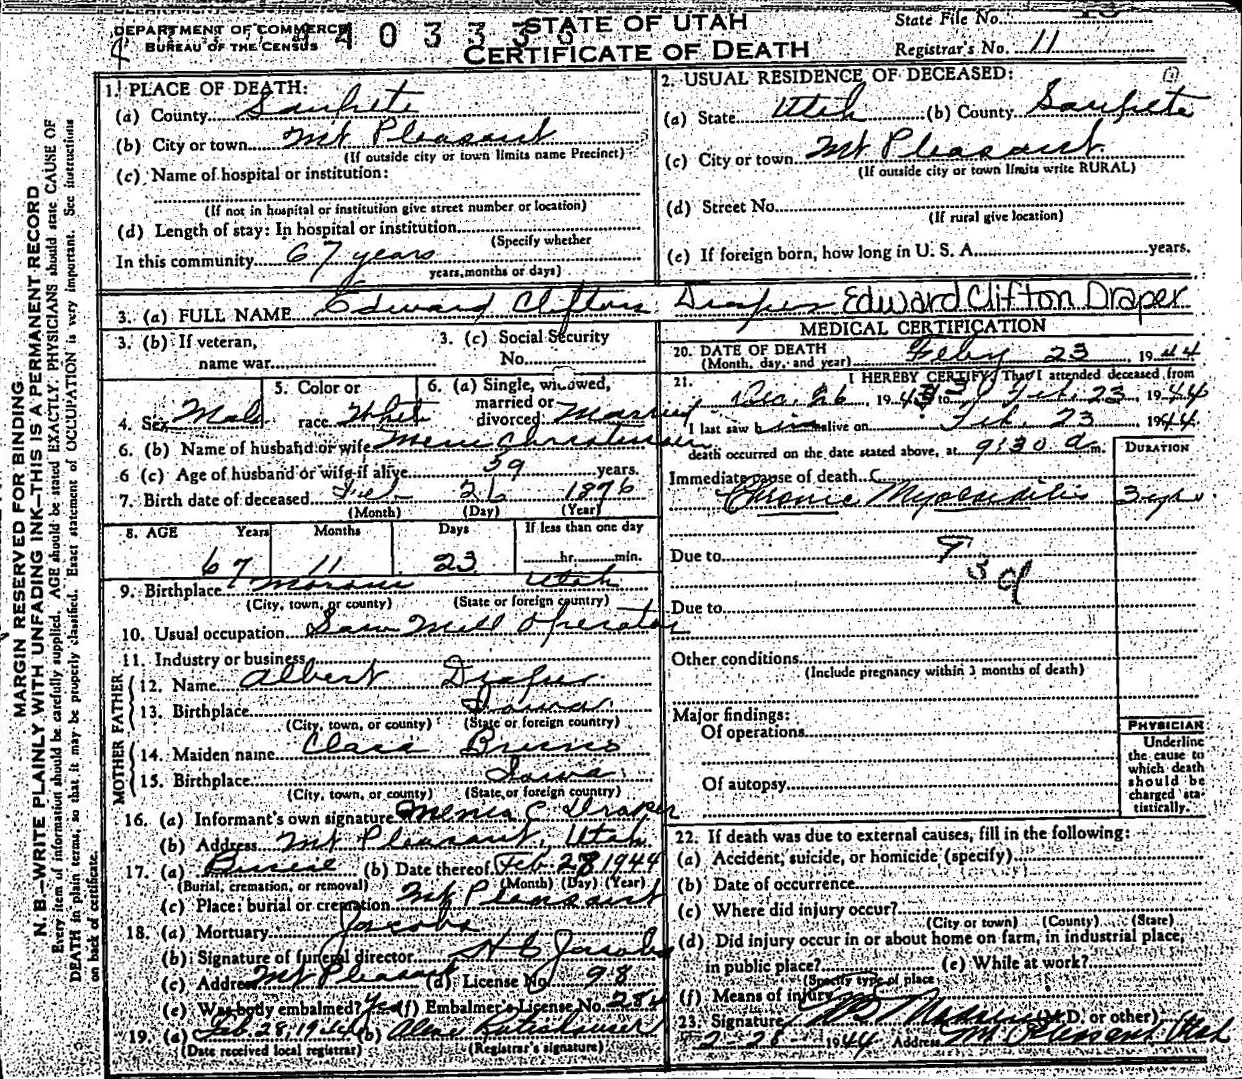 DEPARTMENT OF COMMERCE
BUREAU OF THE CENSUS
STATE OF UTAH
CERTIFICATE OF DEATH
State File No.
Registrar's No. 11
MARGIN RESERVED FOR BINDING
N. B.—WRITE PLAINLY WITH UNFADING INK—THIS IS A PERMANENT RECORD
Every item of information should be carefully supplied. AGE should be stated EXACTLY. PHYSICIANS should state CAUSE OF
DEATH in plain terms, so that it may be properly classified. Exact statement of OCCUPATION is very important. See instructions
on back of certificate.
1. PLACE OF DEATH:
(a) County Sanpete
(b) City or town Mt Pleasant
(If outside city or town limits name Precinct)
(c) Name of hospital or institution:
(If not in hospital or institution give street number or location)
(d) Length of stay: In hospital or institution
(Specify whether
In this community 67 years
years, months or days)
2. USUAL RESIDENCE OF DECEASED:
(a) State Utah (b) County Sanpete
(c) City or town Mt Pleasant
(If outside city or town limits write RURAL)
(d) Street No.
(If rural give location)
(e) If foreign born, how long in U. S. A. years.
3. (a) FULL NAME Edward Clifton Draper Edward Clifton Draper
3. (b) If veteran,
name war
3. (c) Social Security
No.
4. Sex Male
5. Color or
race White
6. (a) Single, widowed,
married or
divorced Married
6. (b) Name of husband or wife Christensen
6 (c) Age of husband or wife if alive 59 years.
7. Birth date of deceased Feb 26 1876
(Month) (Day) (Year)
8. AGE Years Months Days If less than one day
67 11 23 hr. min.
9. Birthplace Moroni Utah
(City, town, or county) (State or foreign country)
10. Usual occupation Saw Mill Operator
11. Industry or business
FATHER
12. Name Albert Draper
13. Birthplace Iowa
(City, town, or county) (State or foreign country)
MOTHER
14. Maiden name Clara
15. Birthplace Iowa
(City, town, or county) (State, or foreign country)
16. (a) Informant's own signature C Draper
(b) Address Mt Pleasant, Utah
17. (a) (b) Date thereof Feb 28 1944
(Burial, cremation, or removal) (Month) (Day) (Year)
(c) Place: burial or cremation Mt Pleasant
18. (a) Mortuary Jacobs
(b) Signature of funeral director Jacobs
(c) Address Mt Pleasant (d) License No. 98
(e) Was body embalmed? Yes (f) Embalmer's License No. 284
19. (a) Feb 28, 1944 (b)
(Date received local registrar) (Registrar's signature)
MEDICAL CERTIFICATION
20. DATE OF DEATH Feby 23, 1944
(Month, day, and year)
21. I HEREBY CERTIFY, That I attended deceased from
Dec. 26, 1943 to Feb. 23, 1944
I last saw him alive on Feb. 23 1944.
death occurred on the date stated above, at 9:30 a m.
DURATION
Immediate cause of death
Chronic Myocarditis 3 yrs.
Due to
Due to
Other conditions
(Include pregnancy within 3 months of death)
Major findings:
Of operations
Of autopsy
PHYSICIAN
Underline
the cause to
which death
should be
charged sta-
tistically.
22. If death was due to external causes, fill in the following:
(a) Accident, suicide, or homicide (specify)
(b) Date of occurrence
(c) Where did injury occur?
(City or town) (County) (State)
(d) Did injury occur in or about home on farm, in industrial place,
in public place? (e) While at work?
(Specify type of place
(f) Means of injury
23. Signature Madsen (M.D. or other)
1944 Address Mt Pleasant Utah